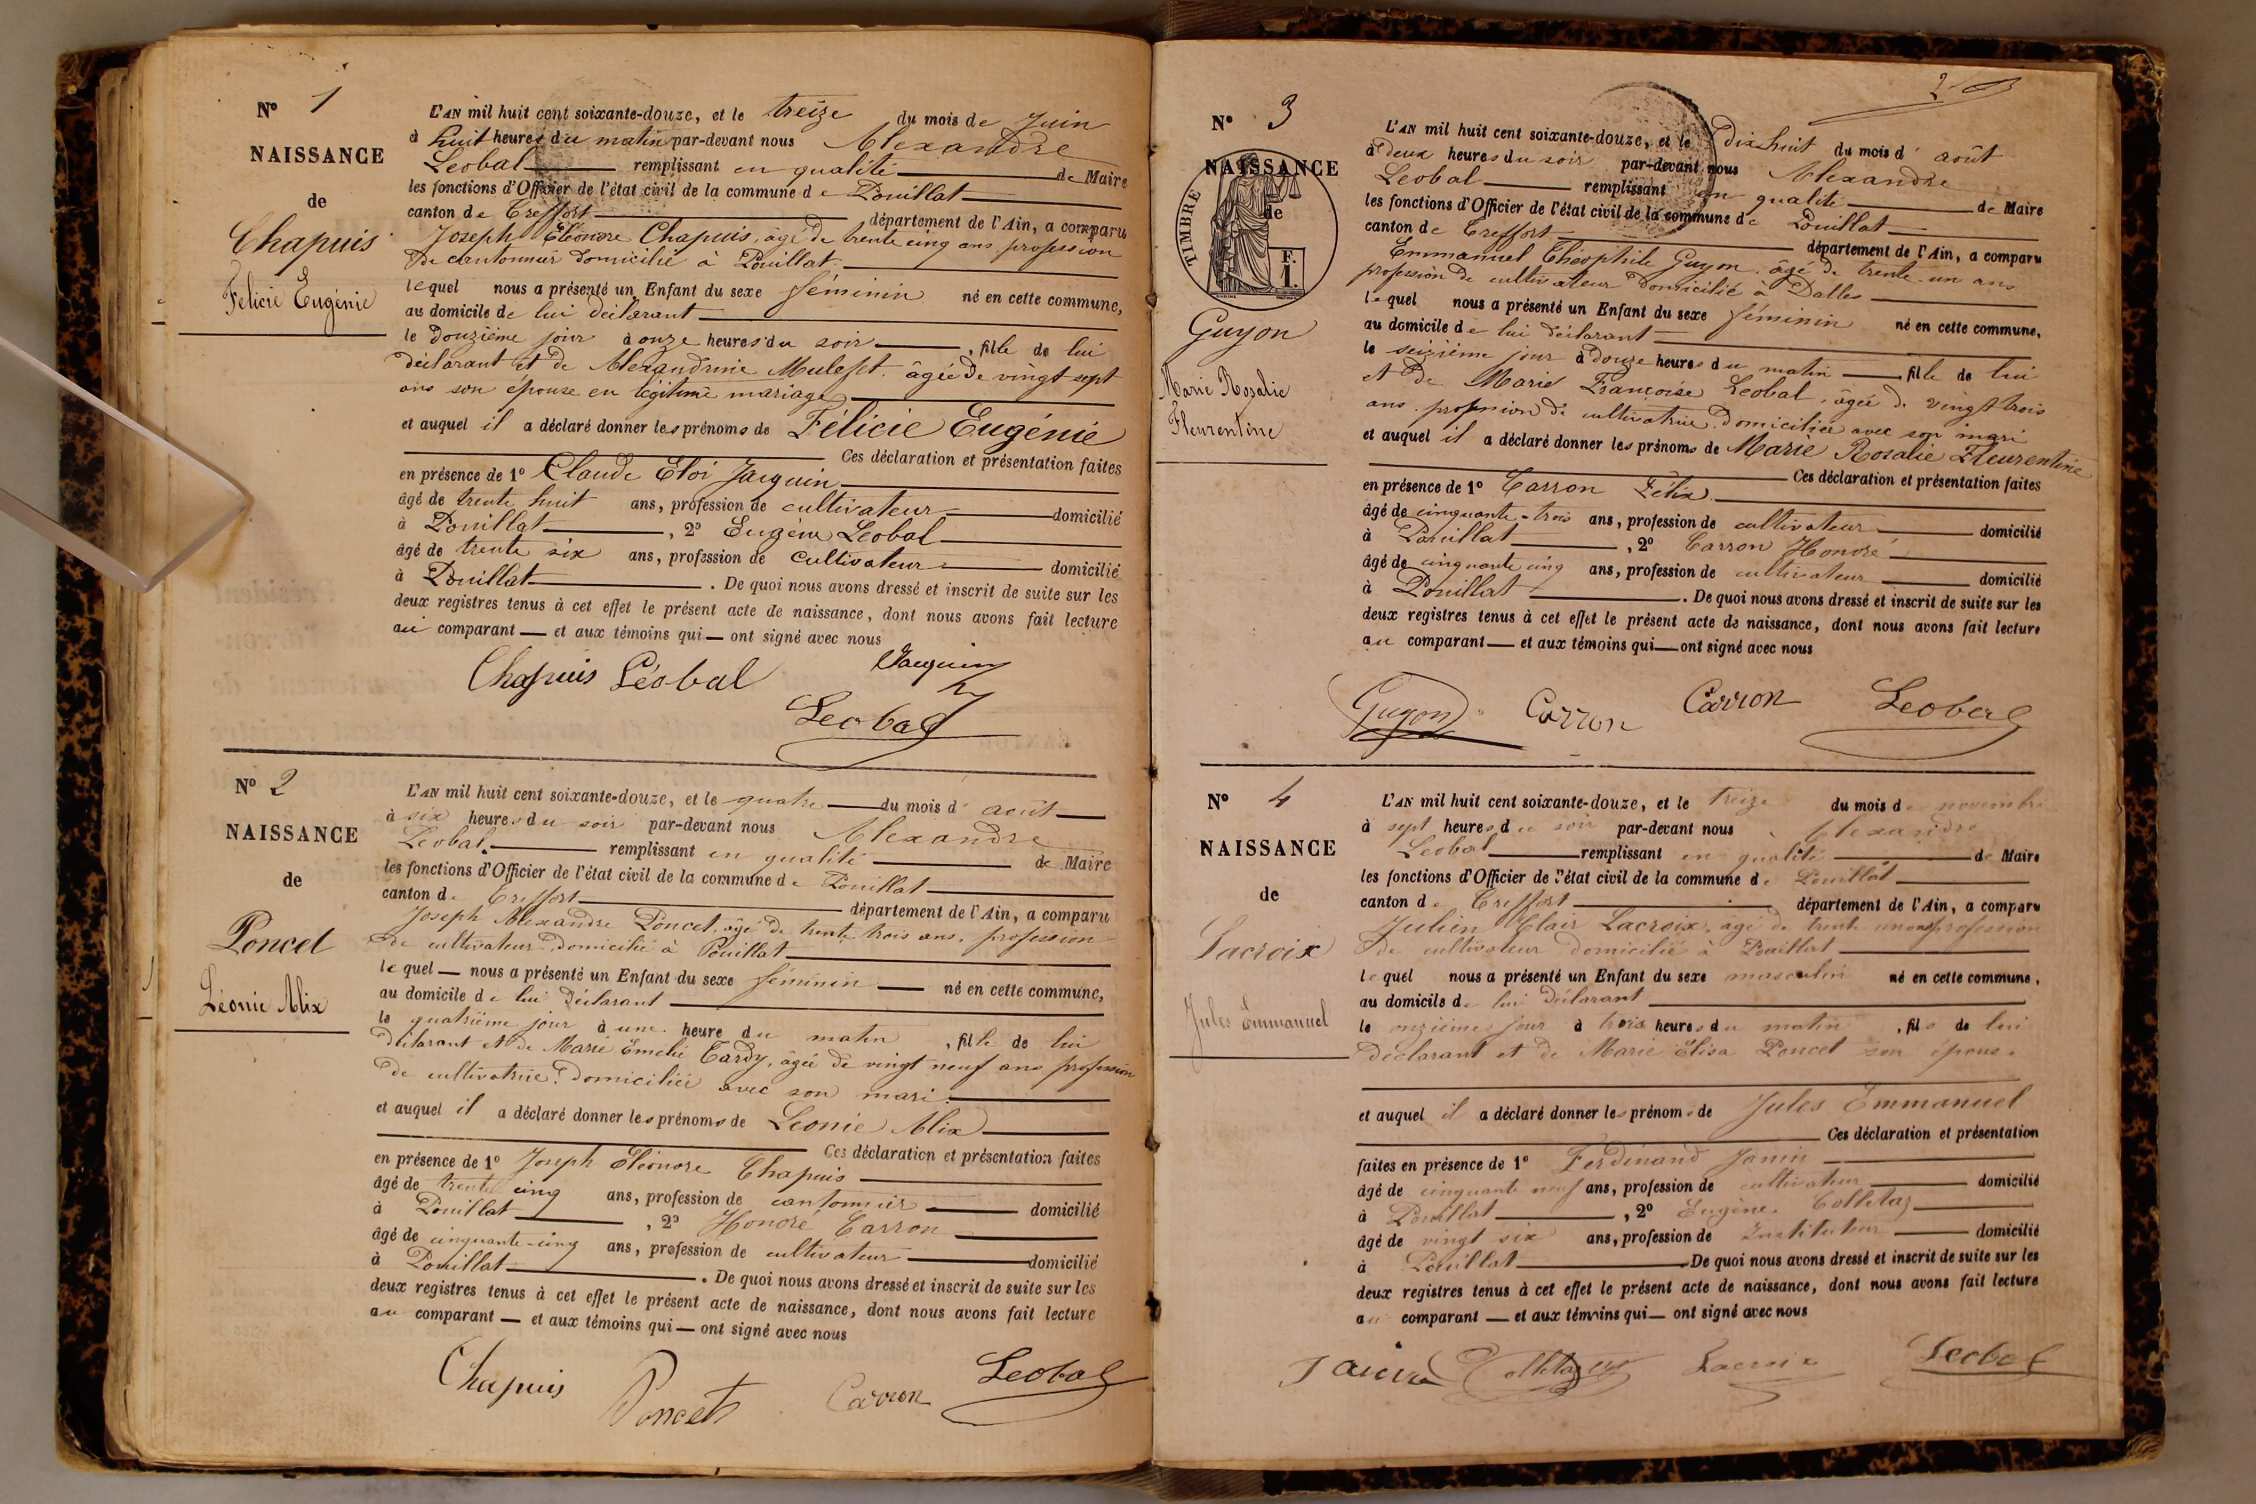 N° 1
NAISSANCE
de
Chapuis
Félicie Eugénie
L'AN mil huit cent soixante-douze, et le treize du mois de Juin
à huit heures du matin par-devant nous Alexandre
Leobal remplissant en qualité de Maire
les fonctions d'Officier de l'état civil de la commune de Pouillat
canton de Treffort département de l'Ain, a comparu
Joseph Eléonore Chapuis, âgé de trente cinq ans, profession
de cantonnier domicilié à Pouillat
lequel nous a présenté un Enfant du sexe féminin né en cette commune,
au domicile de lui déclarant
le douzième jour à onze heures du soir, fille de lui
déclarant et de Alexandrine âgée de vingt sept
ans son épouse en légitime mariage
et auquel il a déclaré donner les prénoms de Félicie Eugénie
Ces déclaration et présentation faites
en présence de 1° Claude Eloi Jacquin
âgé de trente huit ans, profession de cultivateur domicilié
à Pouillat, 2° Eugène Leobal
âgé de trente six ans, profession de cultivateur domicilié
à Pouillat. De quoi nous avons dressé et inscrit de suite sur les
deux registres tenus à cet effet le présent acte de naissance, dont nous avons fait lecture
au comparant et aux témoins qui ont signé avec nous
Chapuis Léobal Jacquin
Leobal
N° 2
NAISSANCE
de
Poncet
Léonie Alix
L'AN mil huit cent soixante-douze, et le quatre du mois d'août
à six heures du soir par-devant nous Alexandre
Leobal remplissant en qualité de Maire
les fonctions d'Officier de l'état civil de la commune de Pouillat
canton de Treffort département de l'Ain, a comparu
Joseph Alexandre Poncet, âgé de trente trois ans, profession
de cultivateur domicilié à Pouillat
lequel nous a présenté un Enfant du sexe féminin né en cette commune,
au domicile de lui déclarant
le quatrième jour à une heure du matin, fille de lui
déclarant et de Marie Emélie Tardy, âgée de vingt neuf ans profession
de cultivatrice domiciliée avec son mari
et auquel il a déclaré donner les prénoms de Leonie Alix
Ces déclaration et présentation faites
en présence de 1° Joseph Eléonore Chapuis
âgé de trente cinq ans, profession de cantonnier domicilié
à Pouillat, 2° Honoré Carron
âgé de cinquante-cinq ans, profession de cultivateur domicilié
à Pouillat. De quoi nous avons dressé et inscrit de suite sur les
deux registres tenus à cet effet le présent acte de naissance, dont nous avons fait lecture
au comparant et aux témoins qui ont signé avec nous
Chapuis Poncet Carron Leobal
2
N° 3
NAISSANCE
de
TIMBRE
F. 1.
Guyon
Marie Rosalie
Fleurentine
L'AN mil huit cent soixante-douze, et le dix huit du mois d'août
à deux heures du soir par-devant nous Alexandre
Leobal remplissant en qualité de Maire
les fonctions d'Officier de l'état civil de la commune de Pouillat
canton de Treffort département de l'Ain, a comparu
Emmanuel Théophile Guyon, âgé de trente un ans
profession de cultivateur domicilié à Dalles
lequel nous a présenté un Enfant du sexe féminin né en cette commune,
au domicile de lui déclarant
le seizième jour à douze heures du matin fille de lui
et de Marie Françoise Leobal, âgée de vingt trois
ans, profession de cultivatrice domiciliée avec son mari
et auquel il a déclaré donner les prénoms de Marie Rosalie Fleurentine
Ces déclaration et présentation faites
en présence de 1° Carron Félix
âgé de cinquante-trois ans, profession de cultivateur domicilié
à Pouillat, 2° Carron Honoré
âgé de cinquante cinq ans, profession de cultivateur domicilié
à Pouillat. De quoi nous avons dressé et inscrit de suite sur les
deux registres tenus à cet effet le présent acte de naissance, dont nous avons fait lecture
au comparant et aux témoins qui ont signé avec nous
Guyon Carron Carron Leobal
N° 4
NAISSANCE
de
Lacroix
Jules Emmanuel
L'AN mil huit cent soixante-douze, et le treize du mois de novembre
à sept heures du soir par-devant nous Alexandre
Leobal remplissant en qualité de Maire
les fonctions d'Officier de l'état civil de la commune de Pouillat
canton de Treffort département de l'Ain, a comparu
Julien Clair Lacroix, âgé de trente un ans profession
de cultivateur domicilié à Pouillat
lequel nous a présenté un Enfant du sexe masculin né en cette commune,
au domicile de lui déclarant
le onzième jour à trois heures du matin, fils de lui
déclarant et de Marie Elisa Poncet son épouse
et auquel il a déclaré donner les prénoms de Jules Emmanuel
Ces déclaration et présentation
faites en présence de 1° Ferdinand Janin
âgé de cinquante neuf ans, profession de cultivateur domicilié
à Pouillat, 2° Eugène Colletaz
âgé de vingt six ans, profession de Instituteur domicilié
à Pouillat. De quoi nous avons dressé et inscrit de suite sur les
deux registres tenus à cet effet le présent acte de naissance, dont nous avons fait lecture
au comparant et aux témoins qui ont signé avec nous
Lacroix Leobal